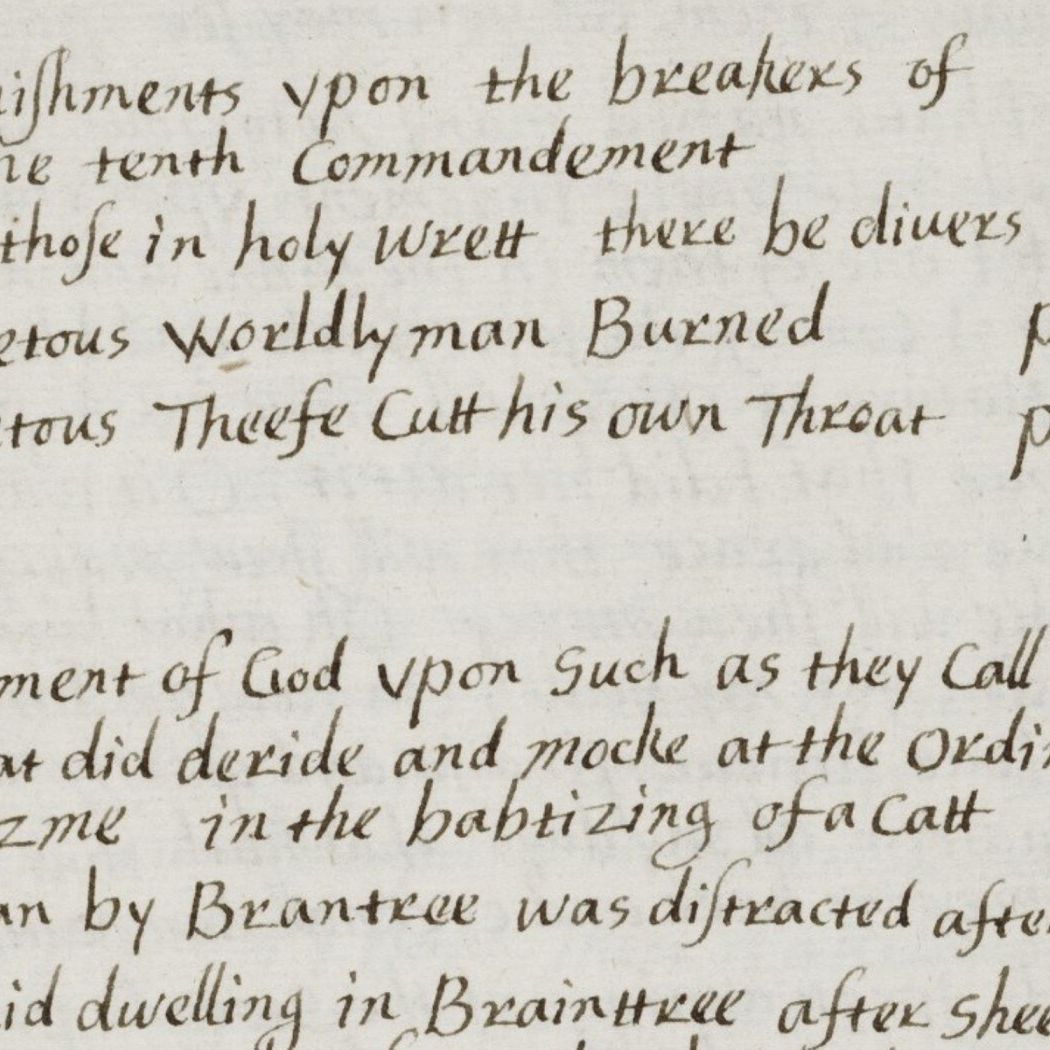 iſhments vpon the breakers of
he tenth Commandement
thoſe in holy wrett there be diuers
etous Worldly man Burned p
etous Theefe Cutt his own Throat p
ment of God vpon Such as they Call
at did deride and mocke at the Ordi
zme in the babtizing of a Catt
an by Brantree was diſtracted after
id dwelling in Brainttree after Shee